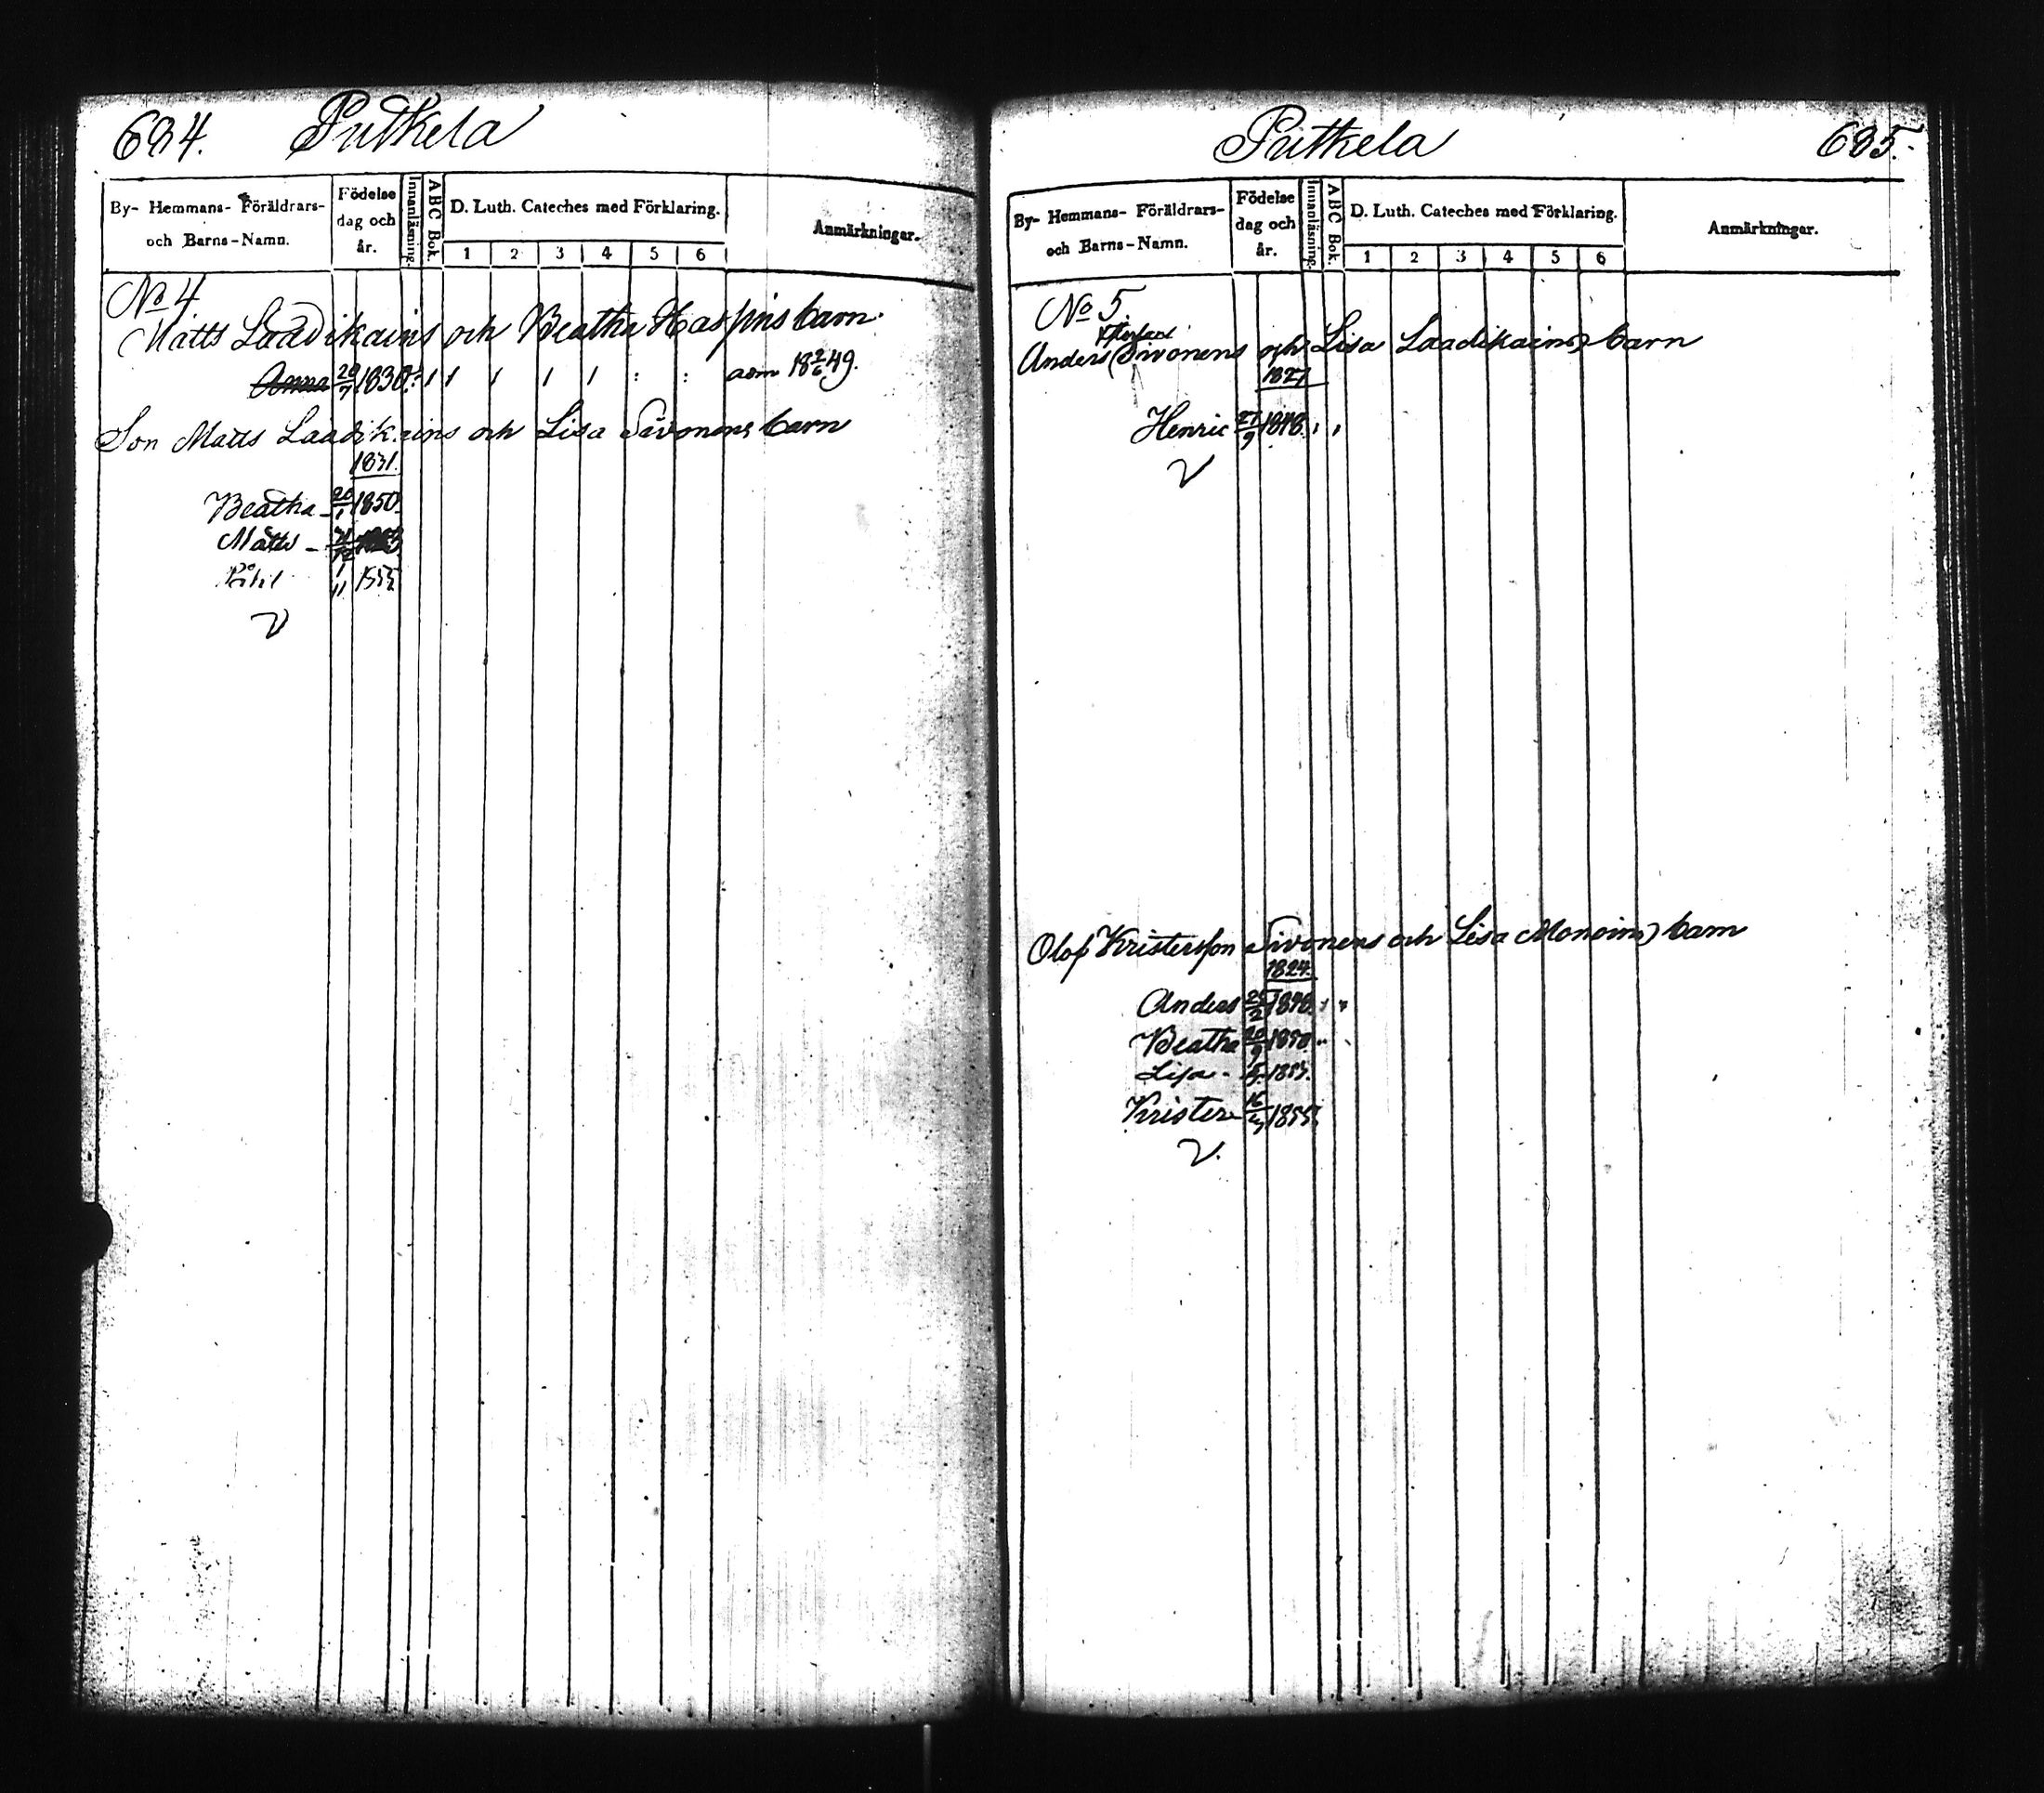 684. Putkela
By- Hemmans- Föräldrars- och Barns-Namn.
Födelse dag och år.
Innanläsning.
ABC Bok.
D. Luth. Cateches med Förklaring.
1 2 3 4 5 6
Anmärkningar.
No 4
Matts Laadikains och Beatha Haspins barn
Anna 20/7 1830 adm 18 2/6 49.
Son Matts Laadikains och Lisa Sivonens barn
1831.
Beatha 20/1 1850
Matts
Påhl 1/11 1855
Putkela 685.
By- Hemmans- Föräldrars- och Barns-Namn.
Födelse dag och år.
Innanläsning.
ABC Bok.
D. Luth. Cateches med Förklaring.
1 2 3 4 5 6
Anmärkningar.
No 5.
Anders Sivonens och Lisa Laadikains barn
1827
Henric 27/9 1848
Olof Kristersson Sivonens och Lisa Monoins barn
1824.
Anders 1848
Beatha 1850
Lisa 1853.
Krister 1855